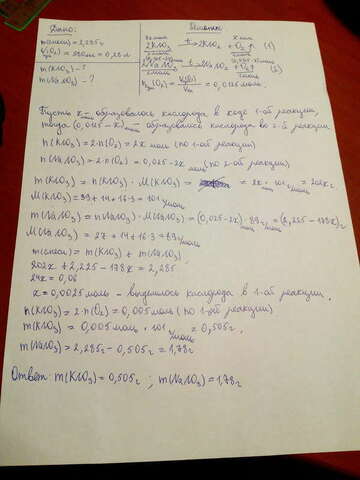 Дано:
m(смеси) = 2,285г
V(O₂) = 280мл = 0,28л
m(KNO₃) - ?
m(NaNO₃) - ?
Решение
2KNO₃ t→ 2KNO₂ + O₂↑ (1)
2NaNO₃ t→ 2NaNO₂ + O₂↑ (2)
n(O₂) = V(O₂)/Vm = 0,0125 моль
Пусть x моль образовалось кислорода в ходе 1-ой реакции,
тогда (0,0125 - x) моль образовалось кислорода во 2-й реакции
n(KNO₃) = 2·n(O₂) = 2x моль (по 1-ой реакции)
n(NaNO₃) = 2·n(O₂) = 0,025-2x моль (по 2-ой реакции)
m(KNO₃) = n(KNO₃)·M(KNO₃) = 2x·101 = 202x г.
M(KNO₃) = 39+14+16·3 = 101 г/моль
m(NaNO₃) = n(NaNO₃)·M(NaNO₃) = (0,025-2x)·89 = (2,225-178x)г
M(NaNO₃) = 27+14+16·3 = 89 г/моль
m(смеси) = m(KNO₃) + m(NaNO₃)
202x + 2,225 - 178x = 2,285
24x = 0,06
x = 0,0025 моль - выделилось кислорода в 1-ой реакции.
n(KNO₃) = 2·n(O₂) = 0,005 моль (по 1-ой реакции)
m(KNO₃) = 0,005 моль · 101 г/моль = 0,505г
m(NaNO₃) = 2,285г - 0,505г = 1,78г
Ответ: m(KNO₃) = 0,505г ; m(NaNO₃) = 1,78г